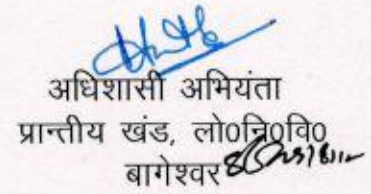 अधिशासी अभियंता
प्रान्तीय खंड, लो०नि०वि०
बागेश्वर